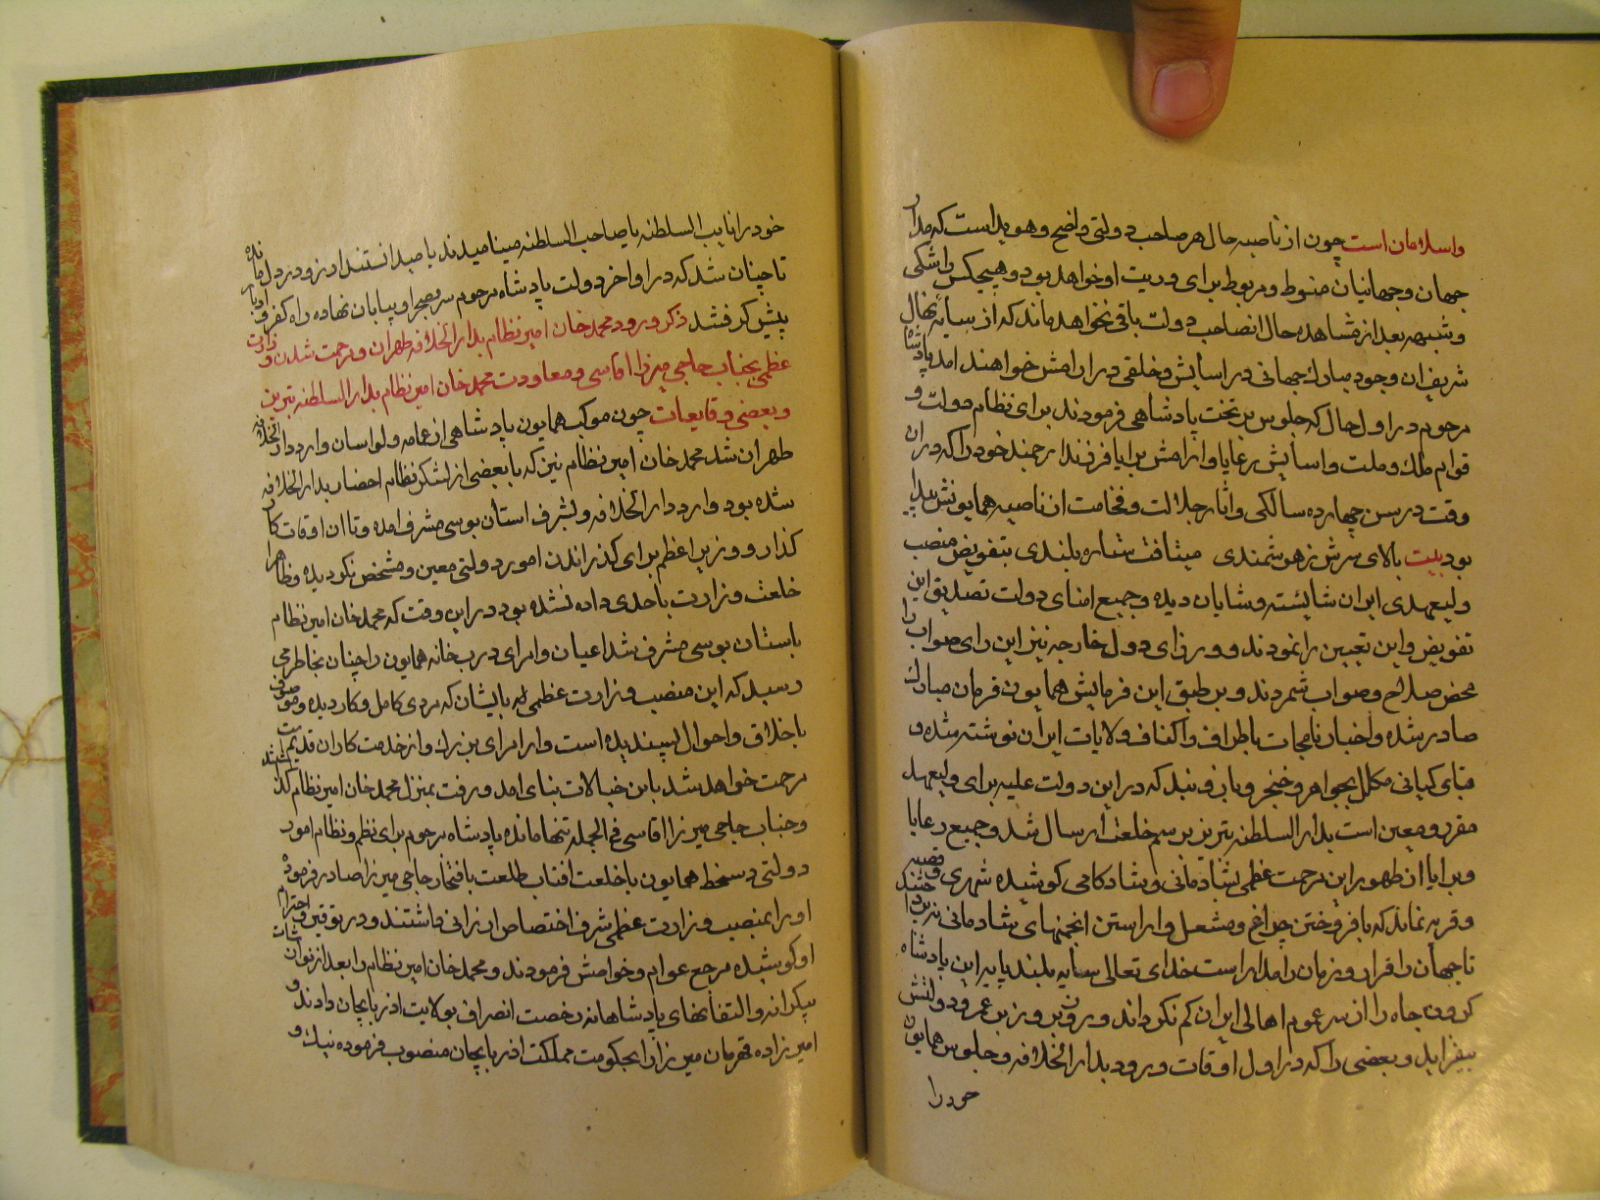 واسلامان است چون از ناصیه حال هر صاحب دولتی واضح و هویداست که مدار
جهان و جهانیان منوط و مربوط برای و رویت او خواهد بود و هیچکس را شکی
و شبهه بعد از مشاهده حال انصاحب دولت باقی نخواهد ماند که از سایه نهال
شریف ان وجود مبارک جهانی در اسایش و خلقی در ارامش خواهند امد پادشاه
مرحوم در اول حال که جلوس بر تخت پادشاهی فرمودند برای نظام دولت و
قوام ملک و ملت و اسایش رعایا و ارامش برایا فرزند ارجمند خود را که در ان
وقت در سن چهارده سالگی و اثار جلالت و فخامت از ناصیه همایونش پیدا
بود بیت بالای سرش ز هوشمندی میتافت ستاره بلندی بتفویض منصب
ولیعهدی ایران شایسته و شایان دیده و جمیع امنای دولت تصدیق این
تفویض و این تعیین را نمودند و وزرای دول خارجه نیز این رای صواب را
محض صلاح و صواب شمردند و بر طبق این فرمایش همایون فرمان مبارک
صادر شده و اخبار نامجات باطراف و اکناف ولایات ایران نوشته شده و
قبای کیانی مکلل بجواهر و خنجر و بازوبند که در این دولت علیه برای ولیعهد
مقرر و معین است بدار السلطنه تبریز برسم خلعت ارسال شد و جمیع رعایا
و برایا ان ظهور این مرحمت عظمی بشادمانی و شادکامی کوشیده شهری و قصبه
و قریه نماند که بافروختن چراغ و مشعل و اراستن انجمنهای شادمانی نپرداختند
تا جهان را قرار و زمان را مدار است خدای تعالی سایه بلند پایه این پادشاه
کردون جاه را از سر عموم اهالی ایران کم نکرداند و روز بروز بر عمر و دولتش
بیفزاید و بعضی را که در اول اوقات ورود بدار الخلافه و جلوس همایون
خود را
خود را نایب السلطنه یا صاحب السلطنه مینامیدند یا میدانستند ارزو در دل مانده
تا چنان شد که در اواخر دولت پادشاه مرحوم سر بصحرا و بیابان نهاده راه کفر و
پیش کرفتند ذکر ورود محمد خان امیر نظام بدار الخلافه طهران و مرحمت شدن وزارت
عظمی بجناب حاجی میرزا اقاسی و معاودت محمد خان امیر نظام بدار السلطنه تبریز
و بعضی وقایعات چون موکب همایون پادشاهی از عامه و لواسان وارد دار الخلافه
طهران شد محمد خان امیر نظام نیز که با بعضی از لشکر نظام احضار بدار الخلافه
شده بود وارد دار الخلافه و بشرف استان بوسی مشرف امده و تا ان اوقات کار
کذار و وزیر اعظم برای کذراندن امور دولتی معین و مشخص نکردیده و ظاهرا
خلعت وزارت باحدی داده نشده بود در این وقت که محمد خان امیر نظام
باستان بوسی مشرف شد اعیان و امرای درب خانه همایون را چنان بخاطر می
رسید که این منصب وزارت عظمی بایشان که مردی کامل و کاردیده و موصوف
باخلاق و احوال پسندیده است و از امرای بزرک و از خدمت کاران قدیم است
مرحمت خواهد شد باین خیالات بنای امد و رفت بمنزل محمد خان امیر نظام کذاشتند
و جناب حاجی میرزا اقاسی فی الجمله تنها مانده پادشاه مرحوم برای نظم و نظام امور
دولتی دستخط همایون با خلعت افتاب طلعت بافتخار حاجی میرزا صادر فرموده
او را بمنصب وزارت عظمی شرف اختصاص ارزانی داشتند و در توقیر و احترام
او کوشیده مرجع عوام و خواصش فرمودند و محمد خان امیر نظام را بعد از نوازشات
بیکرانه و التفاتهای پادشاهانه رخصت انصراف بولایت اذربایجان دادند و
امیرزاده قهرمان میرزا را بحکومت مملکت اذربایجان منصوب فرموده نیک و